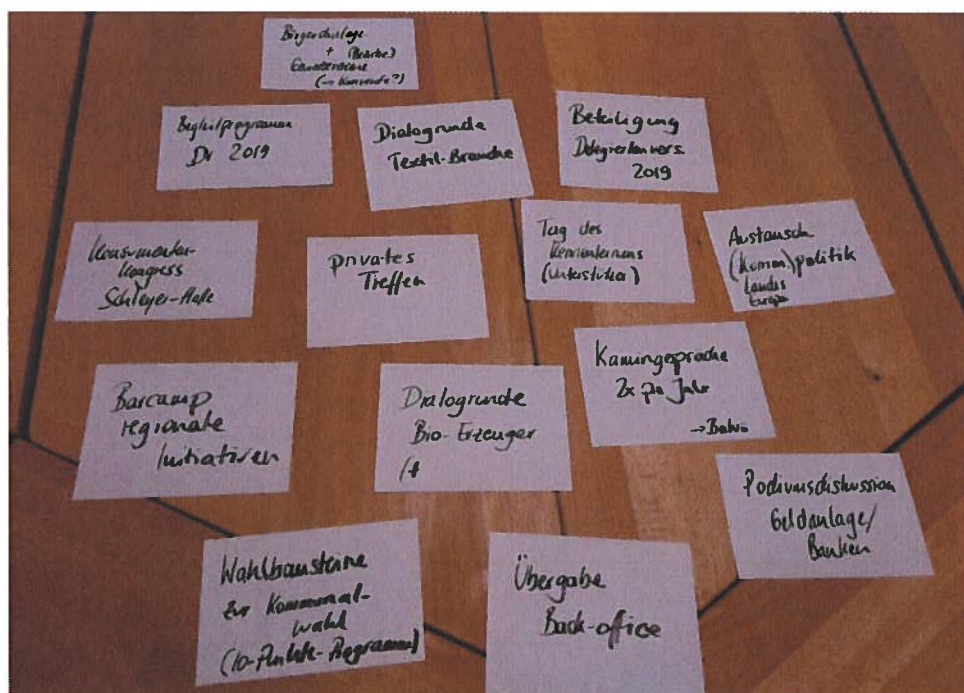 Bürger
+ (Bezirke)
(→ Konvente?)
Begleitprogramm
DV 2019
Dialogrunde
Textil-Branche
Beteiligung
Delegiertenvers.
2019
Konsumenten-
kongress
Schleyer-Halle
privates
Treffen
Tag des
Kennenlernens
(Unterstützer)
Austausch
(Komm.)politik
Landes
Europa
Barcamp
regionale
Initiativen
Dialogrunde
Bio-Erzeuger
Kamingespräche
2x pro Jahr
Podiumsdiskussion
Geldanlage/
Banken
Wahlbausteine
zur Kommunal-
wahl
(10-Punkte-Programm)
Übergabe
Back-office